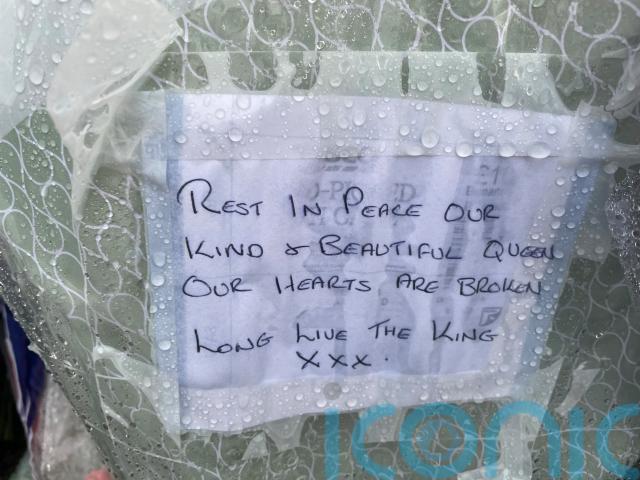 Rest In Peace Our
Kind & Beautiful Queen
Our Hearts Are Broken
Long Live The King
xxx.
iconic